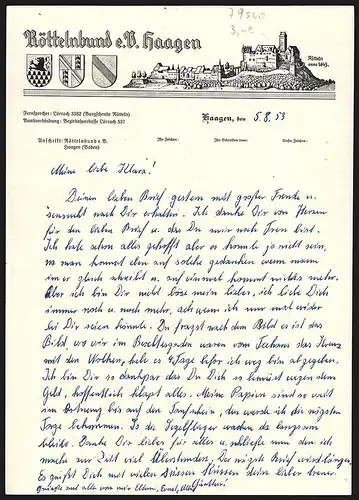 79540
3,-€
Röttelnbund e.V. Haagen
Rötteln
anno 1643.
Fernsprecher: Lörrach 3382 (Burgschenke Rötteln)
Bankverbindung: Bezirkssparkasse Lörrach 537
Haagen, den 5.8.53
Anschrift: Röttelnbund e.V.
Haagen (Baden)
Ihr Zeichen:
Ihr Schreiben vom:
Unser Zeichen:
Meine liebe Klara!
Deinen lieben Brief gestern mit großer Freude u.
Sehnsucht nach Dir erhalten. Ich danke Dir von Herzen
für den lieben Brief u. das Du mir auch Treu bist.
Ich habe schon alles gehofft aber es konnte ja nicht sein,
na man kommt eben auf solche gedanken wenn mann
immer gleich schreibt u. auf einmal kommt nichts mehr.
Aber ich bin Dir nicht böse mein lieber, ich liebe Dich
immer noch u. noch mehr, ach wenn ich nur mal wieder
bei Dir seien könnte. Du fragst nach dem Bild es ist das
Bild, wo wir im
waren vom
das Kreuz
mit den Wolken, hab es 4 Tage bevor ich weg bin abgegeben.
Ich bin Dir so dankbar das Du Dich so bemüst wegen dem
Geld, hoffentlich klapt alles. Meine Papiere sind so weit
in Ortnung bis auf den
, den werde ich die nägsten
Tage bekommen. Ja die
machen da langsam
Danke Dir lieber für alles u. schließe nun den ich
mache zur Zeit viel Überstunden. Der nägste Brief wird länger.
Es grüßt Dich mit vielen
Küssen Deine lieber treuer
Grüße mal alle von mir Eltern, Ernst,
Günther!